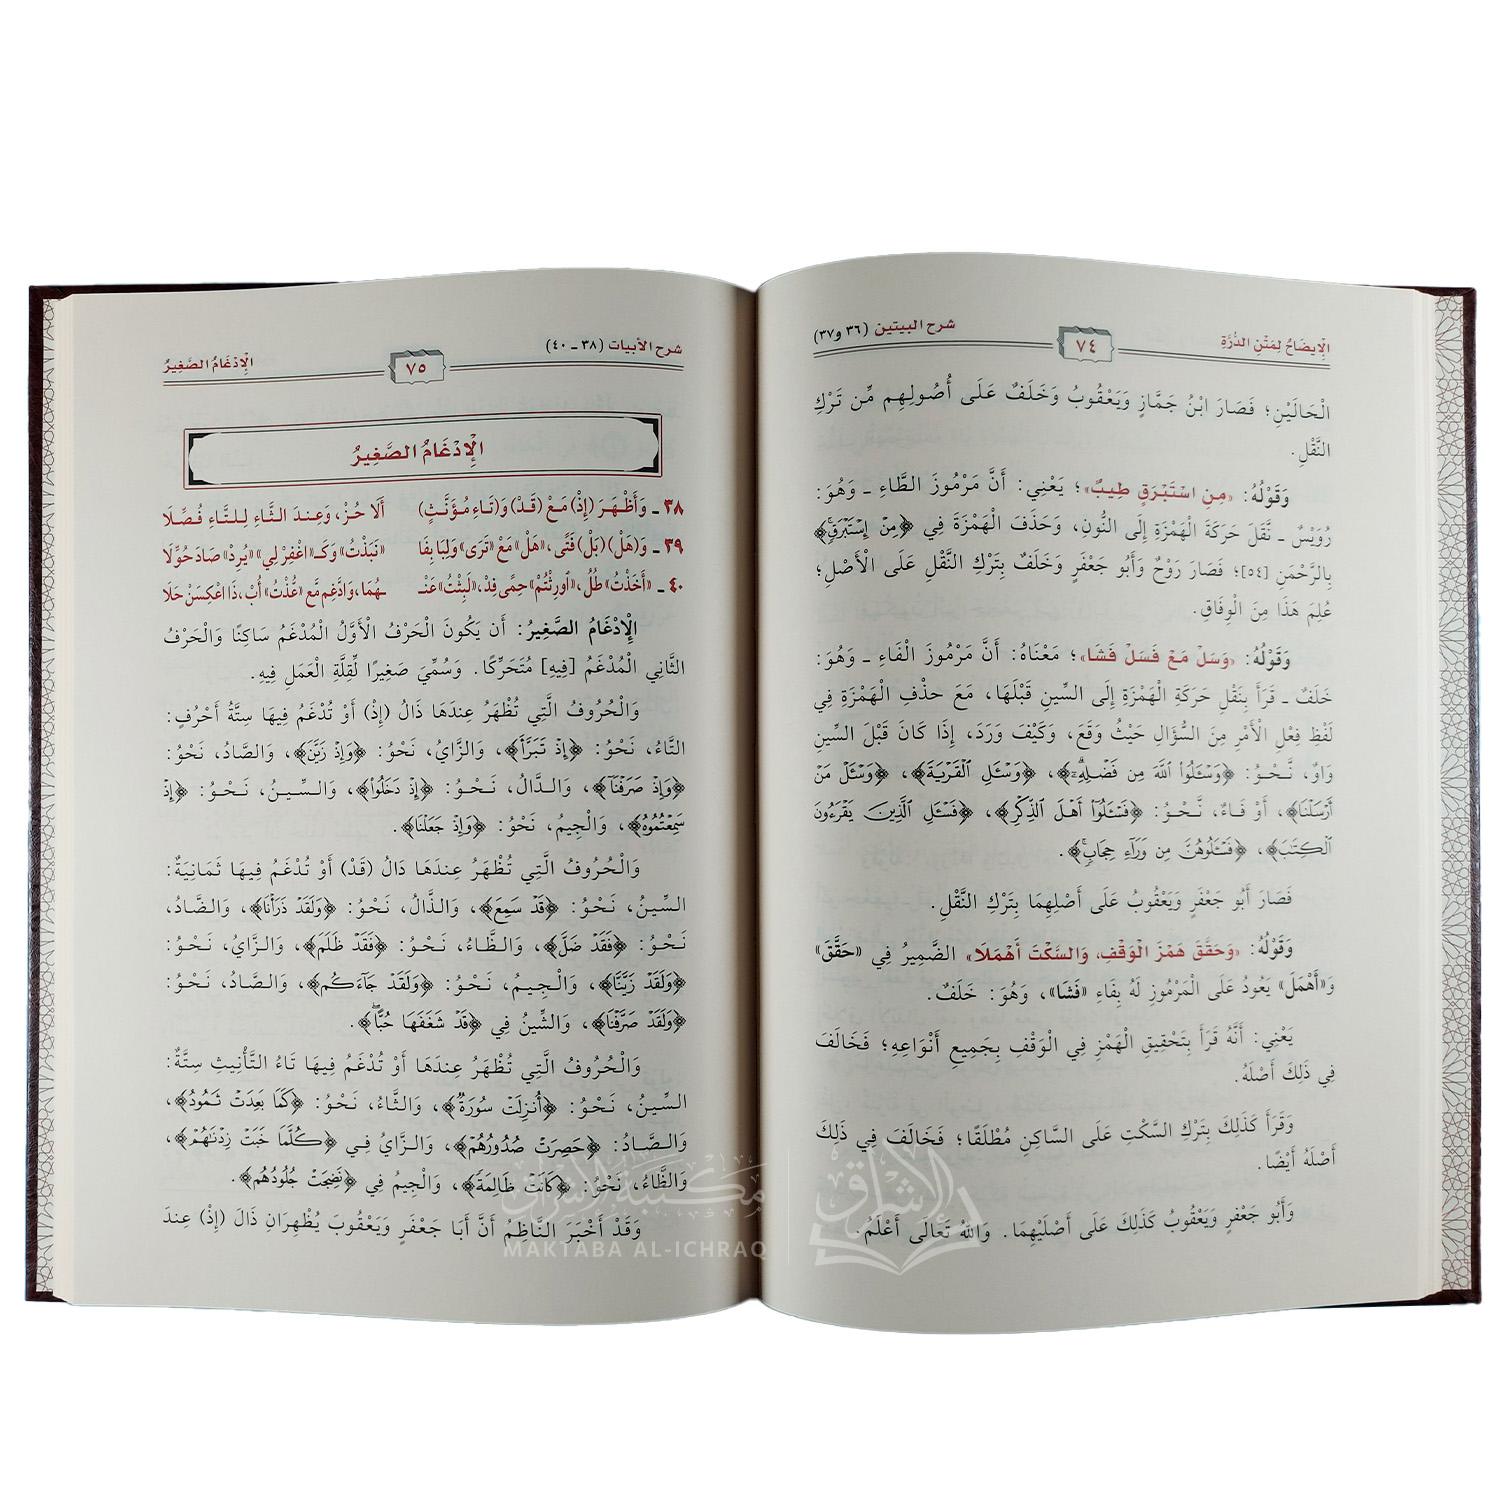 الإِيضَاحُ لِمَتْنِ الدُّرَّةِ
٧٤
شرح البيتين (٣٦ و٣٧)
الْحَالَيْنِ؛ فَصَارَ ابْنُ جَمَّازٍ وَيَعْقُوبُ وَخَلَفٌ عَلَى أُصُولِهِم مِّن تَرْكِ
النَّقْلِ.
وَقَوْلُهُ: «مِنِ اسْتَبْرَقٍ طِيبٌ»؛ يَعْنِي: أَنَّ مَرْمُوزَ الطَّاءِ ـ وَهُوَ:
رُوَيْسٌ ـ نَقَلَ حَرَكَةَ الْهَمْزَةِ إِلَى النُّونِ، وَحَذَفَ الْهَمْزَةَ فِي ﴿مِنْ إِسْتَبْرَقٍ﴾
بِالرَّحْمَنِ [٥٤]؛ فَصَارَ رَوْحٌ وَأَبُو جَعْفَرٍ وَخَلَفٌ بِتَرْكِ النَّقْلِ عَلَى الْأَصْلِ؛
عُلِمَ هَذَا مِنَ الْوِفَاقِ.
وَقَوْلُهُ: «وَسَلْ مَعْ فَسَلْ فَشَا»؛ مَعْنَاهُ: أَنَّ مَرْمُوزَ الْفَاءِ ـ وَهُوَ:
خَلَفٌ ـ قَرَأَ بِنَقْلِ حَرَكَةِ الْهَمْزَةِ إِلَى السِّينِ قَبْلَهَا، مَعَ حذْفِ الْهَمْزَةِ فِي
لَفْظِ فِعْلِ الْأَمْرِ مِنَ السُّؤَالِ حَيْثُ وَقَعَ، وَكَيْفَ وَرَدَ، إِذَا كَانَ قَبْلَ السِّينِ
وَاوٌ، نَّحْوُ: ﴿وَسْـَٔلُوا۟ اللَّهَ مِن فَضْلِهِۦٓ﴾، ﴿وَسْـَٔلِ الْقَرْيَةَ﴾، ﴿وَسْـَٔلْ مَنْ
أَرْسَلْنَا﴾، أَوْ فَاءٌ، نَّحْوُ: ﴿فَسْـَٔلُوٓا۟ أَهْلَ الذِّكْرِ﴾، ﴿فَسْـَٔلِ الَّذِينَ يَقْرَءُونَ
الْكِتَٰبَ﴾، ﴿فَسْـَٔلُوهُنَّ مِن وَرَآءِ حِجَابٍ﴾.
فَصَارَ أَبُو جَعْفَرٍ وَيَعْقُوبُ عَلَى أَصْلِهِمَا بِتَرْكِ النَّقْلِ.
وَقَوْلُهُ: «وَحَقَّقَ هَمْزَ الْوَقْفِ، وَالسَّكْتَ أَهْمَلَا» الضَّمِيرُ فِي «حَقَّقَ»
وَ«أَهْمَلَ» يَعُودُ عَلَى الْمَرْمُوزِ لَهُ بِفَاءِ «فَشَا»، وَهُوَ: خَلَفٌ.
يَعْنِي: أَنَّهُ قَرَأَ بِتَحْقِيقِ الْهَمْزِ فِي الْوَقْفِ بِجَمِيعِ أَنْوَاعِهِ؛ فَخَالَفَ
فِي ذَلِكَ أَصْلَهُ.
وَقَرَأَ كَذَلِكَ بِتَرْكِ السَّكْتِ عَلَى السَّاكِنِ مُطْلَقًا؛ فَخَالَفَ فِي ذَلِكَ
أَصْلَهُ أَيْضًا.
وَأَبُو جَعْفَرٍ وَيَعْقُوبُ كَذَلِكَ عَلَى أَصْلَيْهِمَا. وَاللهُ تَعَالَى أَعْلَمُ.
شرح الأبيات (٣٨ ـ ٤٠)
٧٥
الإِدْغَامُ الصَّغِيرُ
الإِدْغَامُ الصَّغِيرُ
٣٨ ـ وَأَظْهَرَ (إِذْ) مَعْ (قَدْ) وَ(تَاءِ مُؤَنَّثٍ) أَلَا حُزْ، وَعِندَ الثَّاءِ لِلتَّاءِ فُصِّلَا
٣٩ ـ وَ(هَلْ) (بَلْ) فَتًى، «هَلْ» مَعْ «تَرَى» وَلِبَا بِفَا «نَبَذْتُ» وَكَـ«اغْفِرْ لِي» «يُرِدْ» صَادَ حُوِّلَا
٤٠ ـ «أَخَذْتُ» طُلْ، «أُورِثْتُمْ» حِمًى فِدْ، «لَبِثْتُ» عَنْـ ـهُمَا، وَادَّغِم مَّعْ «عُذْتُ» أُبْ، ذَا اعْكِسَنْ حَلَا
الْإِدْغَامُ الصَّغِيرُ: أَن يَكُونَ الْحَرْفُ الْأَوَّلُ الْمُدْغَمُ سَاكِنًا وَالْحَرْفُ
الثَّانِي الْمُدْغَمُ [فِيهِ] مُتَحَرِّكًا. وَسُمِّيَ صَغِيرًا لِّقِلَّةِ الْعَمَلِ فِيهِ.
وَالْحُرُوفُ الَّتِي تُظْهَرُ عِندَهَا ذَالُ (إِذْ) أَوْ تُدْغَمُ فِيهَا سِتَّةُ أَحْرُفٍ:
التَّاءُ، نَحْوُ: ﴿إِذْ تَبَرَّأَ﴾، وَالزَّايُ، نَحْوُ: ﴿وَإِذْ زَيَّنَ﴾، وَالصَّادُ، نَحْوُ:
﴿وَإِذْ صَرَفْنَآ﴾، وَالدَّالُ، نَحْوُ: ﴿إِذْ دَخَلُوا۟﴾، وَالسِّينُ، نَحْوُ: ﴿إِذْ
سَمِعْتُمُوهُ﴾، وَالْجِيمُ، نَحْوُ: ﴿وَإِذْ جَعَلْنَا﴾.
وَالْحُرُوفُ الَّتِي تُظْهَرُ عِندَهَا دَالُ (قَدْ) أَوْ تُدْغَمُ فِيهَا ثَمَانِيَةٌ:
السِّينُ، نَحْوُ: ﴿قَدْ سَمِعَ﴾، وَالذَّالُ، نَحْوُ: ﴿وَلَقَدْ ذَرَأْنَا﴾، وَالضَّادُ،
نَحْوُ: ﴿فَقَدْ ضَلَّ﴾، وَالظَّاءُ، نَحْوُ: ﴿فَقَدْ ظَلَمَ﴾، وَالزَّايُ، نَحْوُ:
﴿وَلَقَدْ زَيَّنَّا﴾، وَالْجِيمُ، نَحْوُ: ﴿وَلَقَدْ جَآءَكُم﴾، وَالصَّادُ، نَحْوُ:
﴿وَلَقَدْ صَرَّفْنَا﴾، وَالشِّينُ فِي ﴿قَدْ شَغَفَهَا حُبًّا﴾.
وَالْحُرُوفُ الَّتِي تُظْهَرُ عِندَهَا أَوْ تُدْغَمُ فِيهَا تَاءُ التَّأْنِيثِ سِتَّةٌ:
السِّينُ، نَحْوُ: ﴿أُنزِلَتْ سُورَةٌ﴾، وَالثَّاءُ، نَحْوُ: ﴿كَمَا بَعِدَتْ ثَمُودُ﴾،
وَالصَّادُ: ﴿حَصِرَتْ صُدُورُهُمْ﴾، وَالزَّايُ فِي ﴿كُلَّمَا خَبَتْ زِدْنَٰهُمْ﴾،
وَالظَّاءُ، نَحْوُ: ﴿كَانَتْ ظَالِمَةً﴾، وَالْجِيمُ فِي ﴿نَضِجَتْ جُلُودُهُم﴾.
وَقَدْ أَخْبَرَ النَّاظِمُ أَنَّ أَبَا جَعْفَرٍ وَيَعْقُوبَ يُظْهِرَانِ ذَالَ (إِذْ) عِندَ
مكتبة الإشراق
MAKTABA AL-ICHRAQ
الإشراق